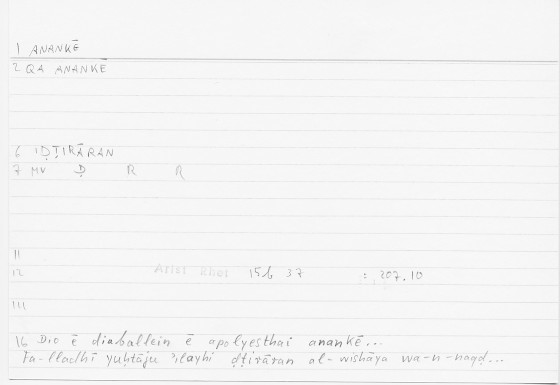 1 ANANKĒ
2 QA ANANKĒ
6 IḌṬIRĀRAN
7 MV Ḍ R R
11
12 Arist Rhet 15b 37 : 207.10
111
16 Dio ē diaballein ē apolyesthai anankē...
Fa-lladhī yuḥtāju ʾilayhi ḍṭirāran al-wishāya wa-n-naqḍ...